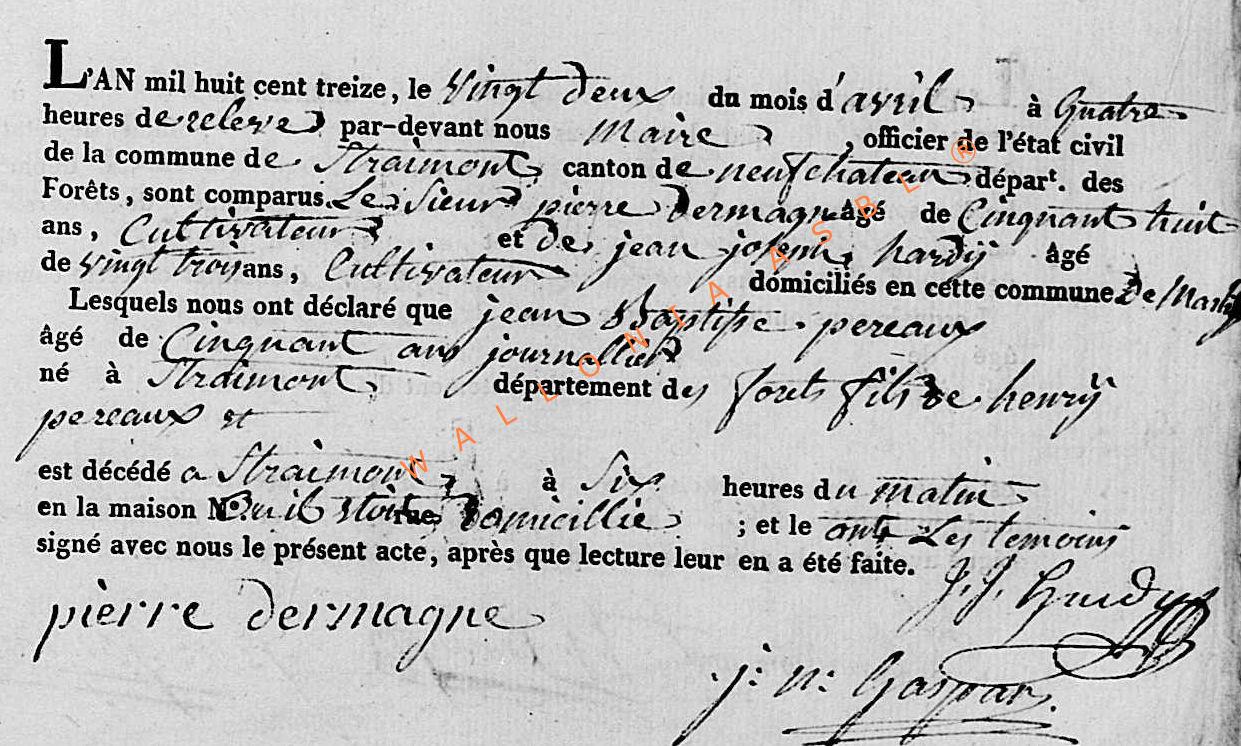 L'AN mil huit cent treize, le vingt deux du mois d'avril à quatre
heures de releve par-devant nous Maire , officier de l'état civil
de la commune de Straimont canton de neufchateau départ. des
Forêts, sont comparus Le Sieur pierre Dermagne âgé de Cinquant huit
ans, Cultivateur et de jean joseph hardÿ âgé
de vingt trois ans, Cultivateur domiciliés en cette commune De
Lesquels nous ont déclaré que jean Baptiste pereaux
âgé de Cinquant ans journallier
né à Straimont département des forets fils de henrÿ
pereaux et
est décédé a Straimont à Six heures du matin
en la maison N°. ou il rue domicillié ; et le ont Les temoins
signé avec nous le présent acte, après que lecture leur en a été faite.
J. J. Hardy
pierre dermagne
j: n: Gaspar
WALLONIA ASBL ®